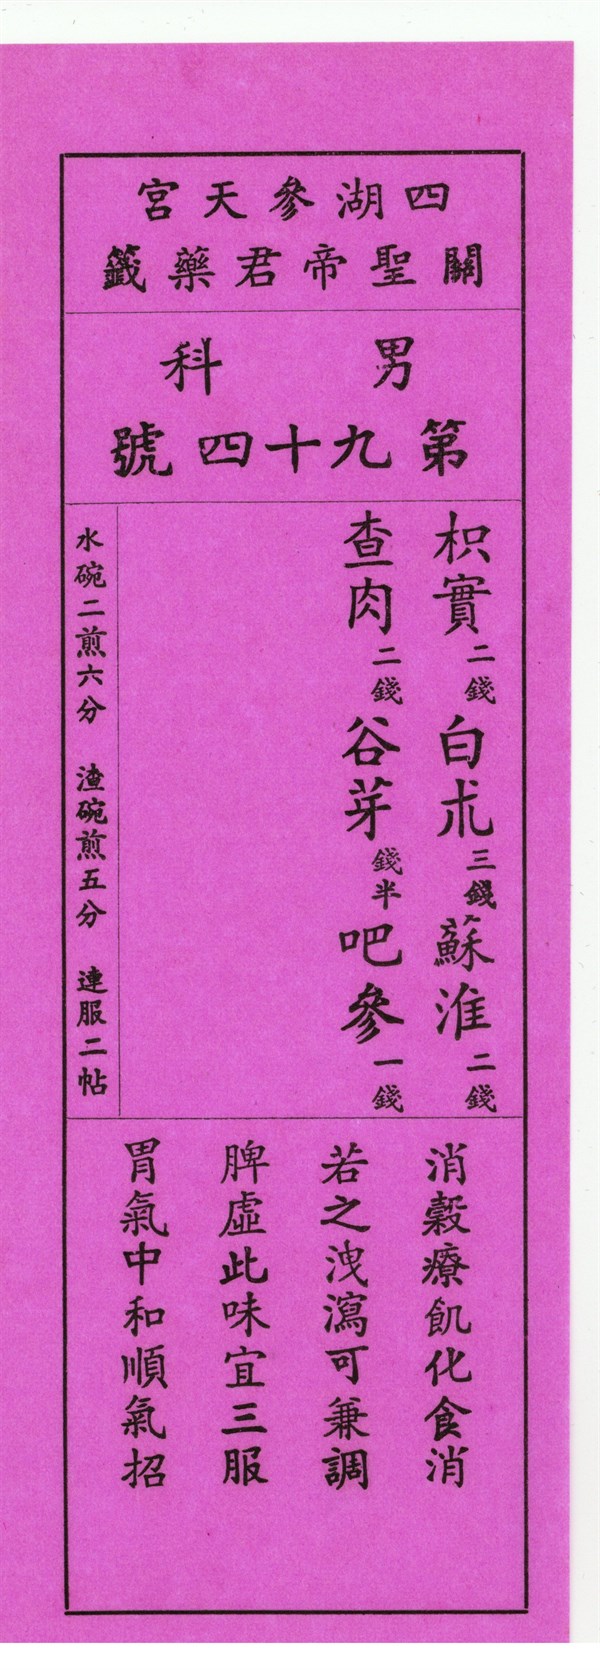 四湖參天宮
關聖帝君藥籤
男科
第九十四號
枳實二錢白朮三錢蘇淮二錢
查肉二錢谷芽錢半吧參一錢
水碗二煎六分 渣碗煎五分 連服二帖
消穀療飢化食消
若之洩瀉可兼調
脾虛此味宜三服
胃氣中和順氣招